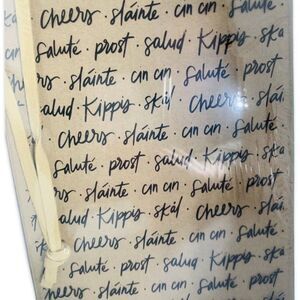 cheers · sláinte · cin cin ·
salute · prost · salud · Kippis · ska
cheers · sláinte · cin cin · salute ·
salud · Kippis · skål · Cheers · sláin
cheers · sláinte · cin cin ·
salute · prost · salud · Kippis · ska
cheers · sláinte · cin cin · salute ·
alud · Kippis · skål · Cheers · sláin
cheers · sláinte · cin cin ·
Salute · prost · salud · Kippis · ska
heers · sláinte · cin cin · salute ·